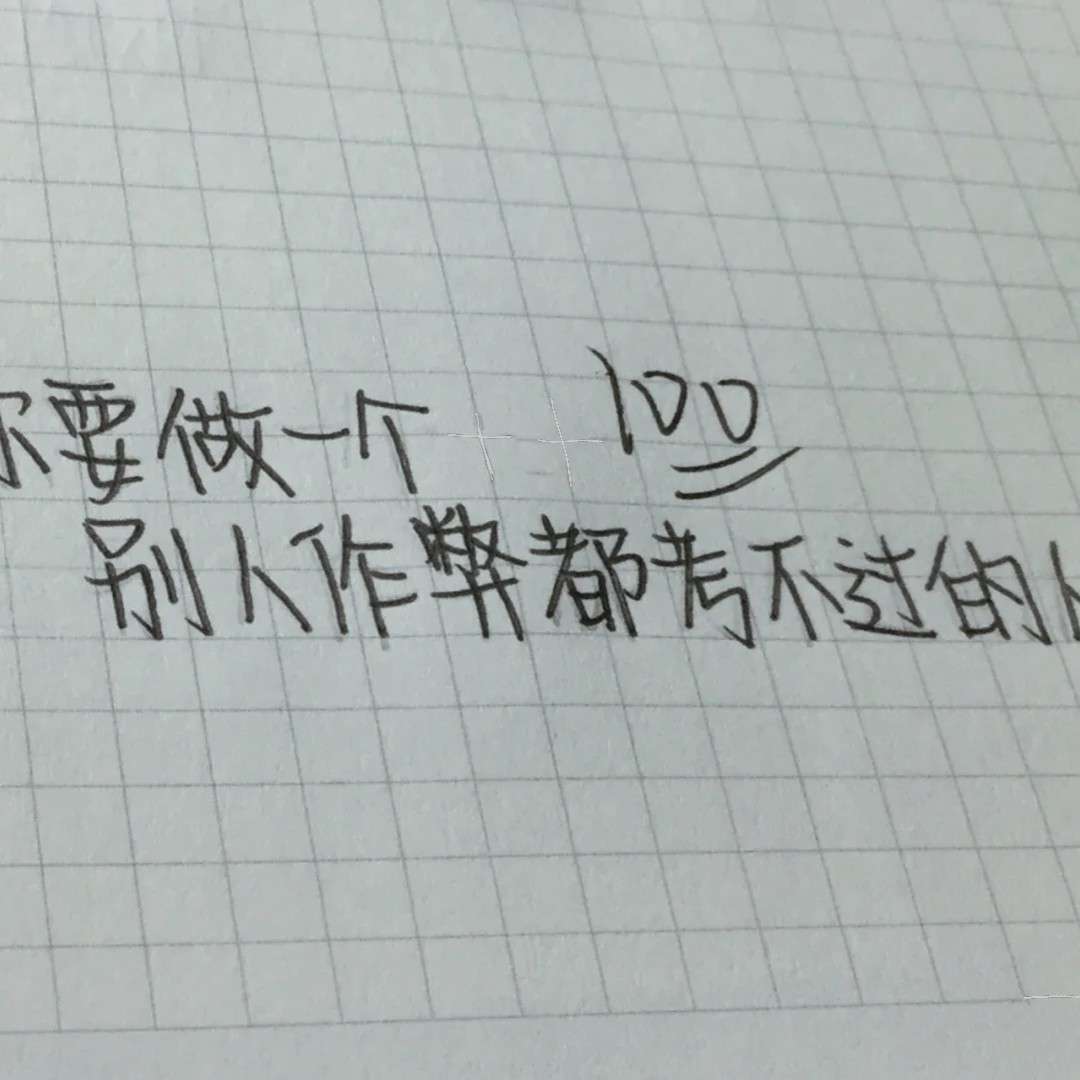 你要做一个
100
别人作弊都考不过的人